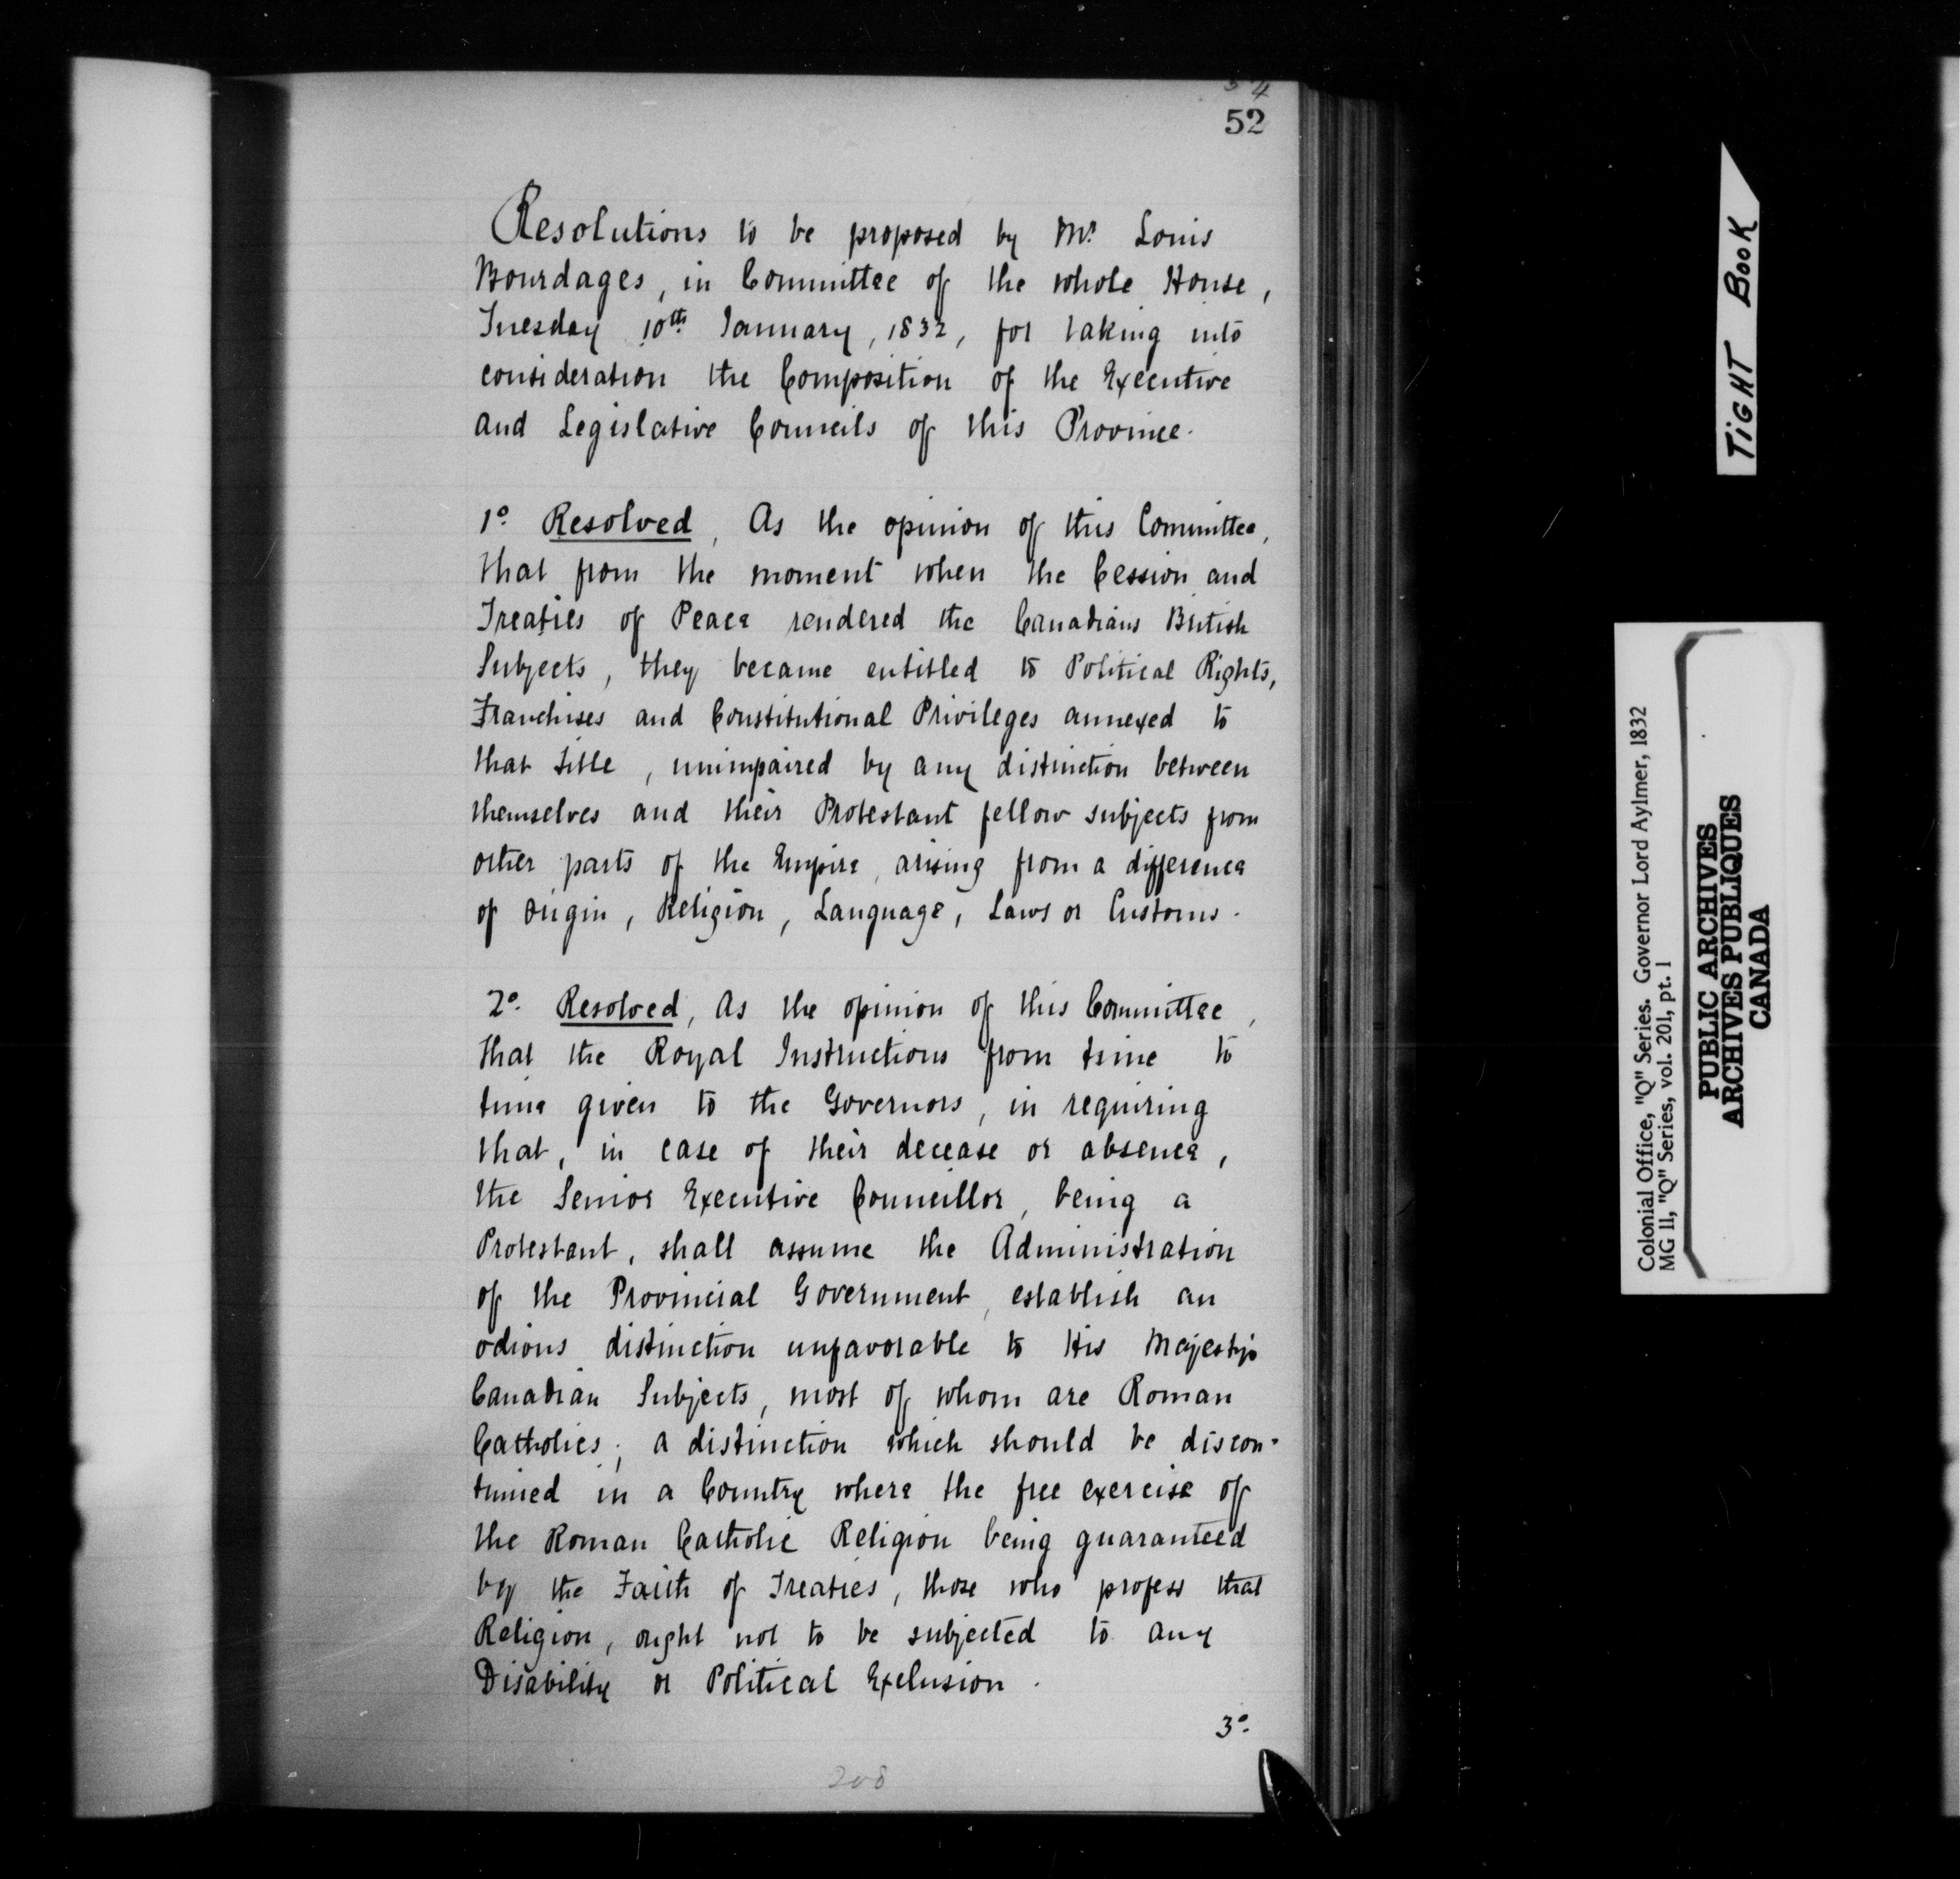 54
52
Resolutions to be proposed by Mr. Louis
Bourdages, in Committee of the whole House,
Tuesday 10th January, 1832, for taking into
consideration the Composition of the Executive
and Legislative Councils of this Province.
1o Resolved, As the opinion of this Committee,
that from the moment when the Cession and
Treaties of Peace rendered the Canadians British
Subjects, they became entitled to Political Rights,
Franchises and Constitutional Privileges annexed to
that title, unimpaired by any distinction between
themselves and their Protestant fellow subjects from
other parts of the Empire, arising from a difference
of origin, Religion, Language, Laws or Customs.
2o Resolved, As the opinion of this Committee,
that the Royal Instructions from time to
time given to the Governors, in requiring
that, in case of their decease or absence,
the Senior Executive Councillor, being a
Protestant, shall assume the Administration
of the Provincial Government, establish an
odious distinction unfavorable to His Majesty's
Canadian Subjects, most of whom are Roman
Catholics; a distinction which should be discon-
tinued in a Country where the free exercise of
the Roman Catholic Religion being guaranteed
by the Faith of Treaties, those who profess that
Religion, ought not to be subjected to any
Disability or Political Exclusion.
3o
208
TIGHT BOOK
Colonial Office, "Q" Series. Governor Lord Aylmer, 1832
MG 11, "Q" Series, vol. 201, pt. 1
PUBLIC ARCHIVES
ARCHIVES PUBLIQUES
CANADA